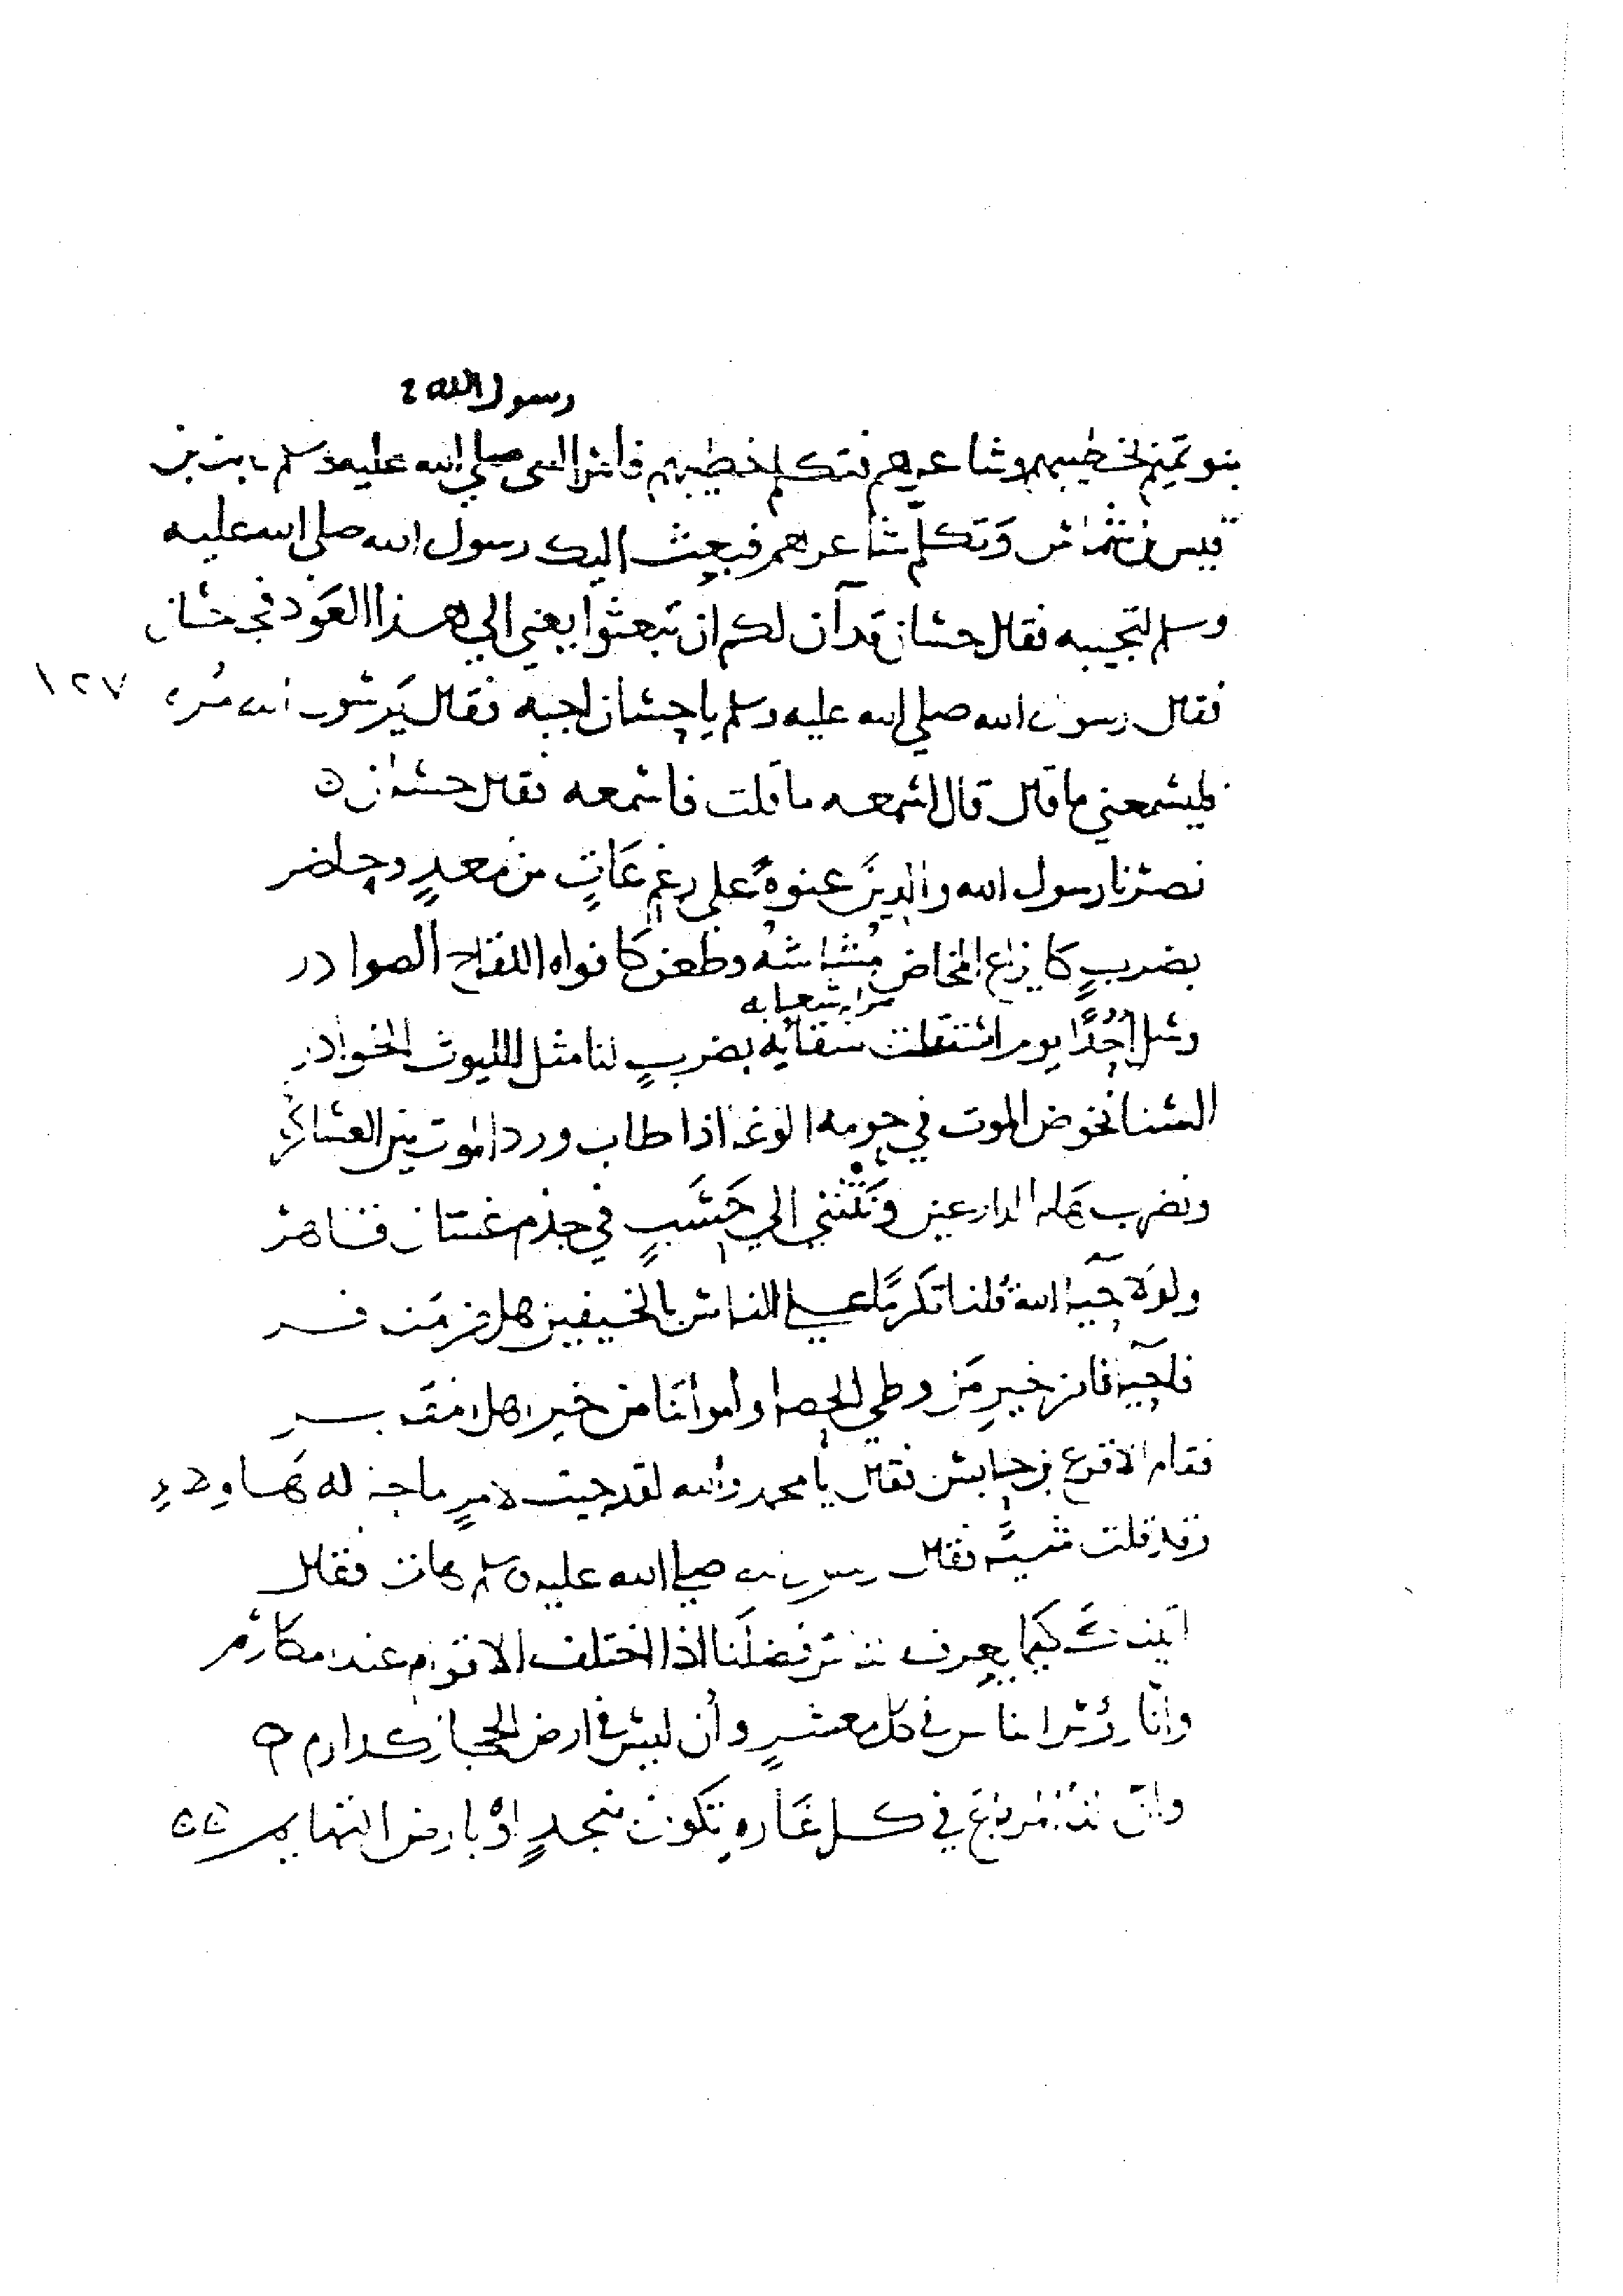 رسول الله
بنو تميم بخطيبهم وشاعرهم فتكلم خطيبهم فامر النبي صلي الله عليه وسلم ثابت بن
قيس بن شماس وتكلم شاعرهم فبعث اليك رسول الله صلى الله عليه
وسلم لتجيبه فقال حسان قد آن لكم ان تبعثوا يعني الي هذا العَود فجا حسان
فقال رسول الله صلي الله عليه وسلم يا حسان اجبه فقال يرسول الله مُره ١٢٧
فليسمعني ما قال قال اسمعه ما قلت فاسمعه فقال حسان ه
نصرنا رسول الله والدين عنوةً علي رغم عَاتٍ من معدٍ وحاضر
بضربٍ كايزاع المخاض مُشاشُه وطعن كافواه اللقاح الصوادر
شعابه
وسل اُحُدًا يوم استقلت شقايه بضربٍ لنا مثل الليوث الخوادر
السنا نخوض الموت في حومه الوغا اذا طاب ورد الموت بين العساكر
ونضرب هام الدارعين ونَنْثني الي حَسَبٍ في جذم غسان قاهر
ولولا حيا الله قلنا تكرمًا علي الناس بالخيفين هل من منافر
فاحيانا من خير من وطي الحصا وامواتنا من خير اهل المقابر
فقام الاقرع بن حابس فقال يا محمد والله لقد جيت لامرٍ ما جا له هاولاء
وقد قلت شيًا فقال رسول الله صلي الله عليه وسلم هات فقال
اتيناك كيما يعرف الناس فضلَنا اذا اختلف الاقوام عند المكارم
وانّا رؤس الناس في كل معشرٍ وأن ليس في ارض الحجاز كدارم ه
وان لنا المرباع في كل غَارهٍ تكون بنجدٍ اوْ بارض التهايم ه ه